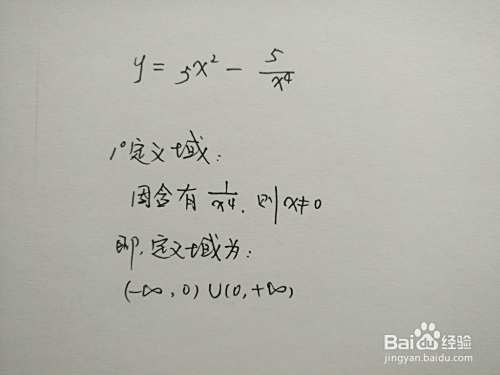 y = 5x² - 5/x⁴
1° 定义域:
因含有 1/x⁴, 则 x≠0
即, 定义域为:
(-∞, 0) ∪ (0, +∞)
Baidu 经验
jingyan.baidu.com